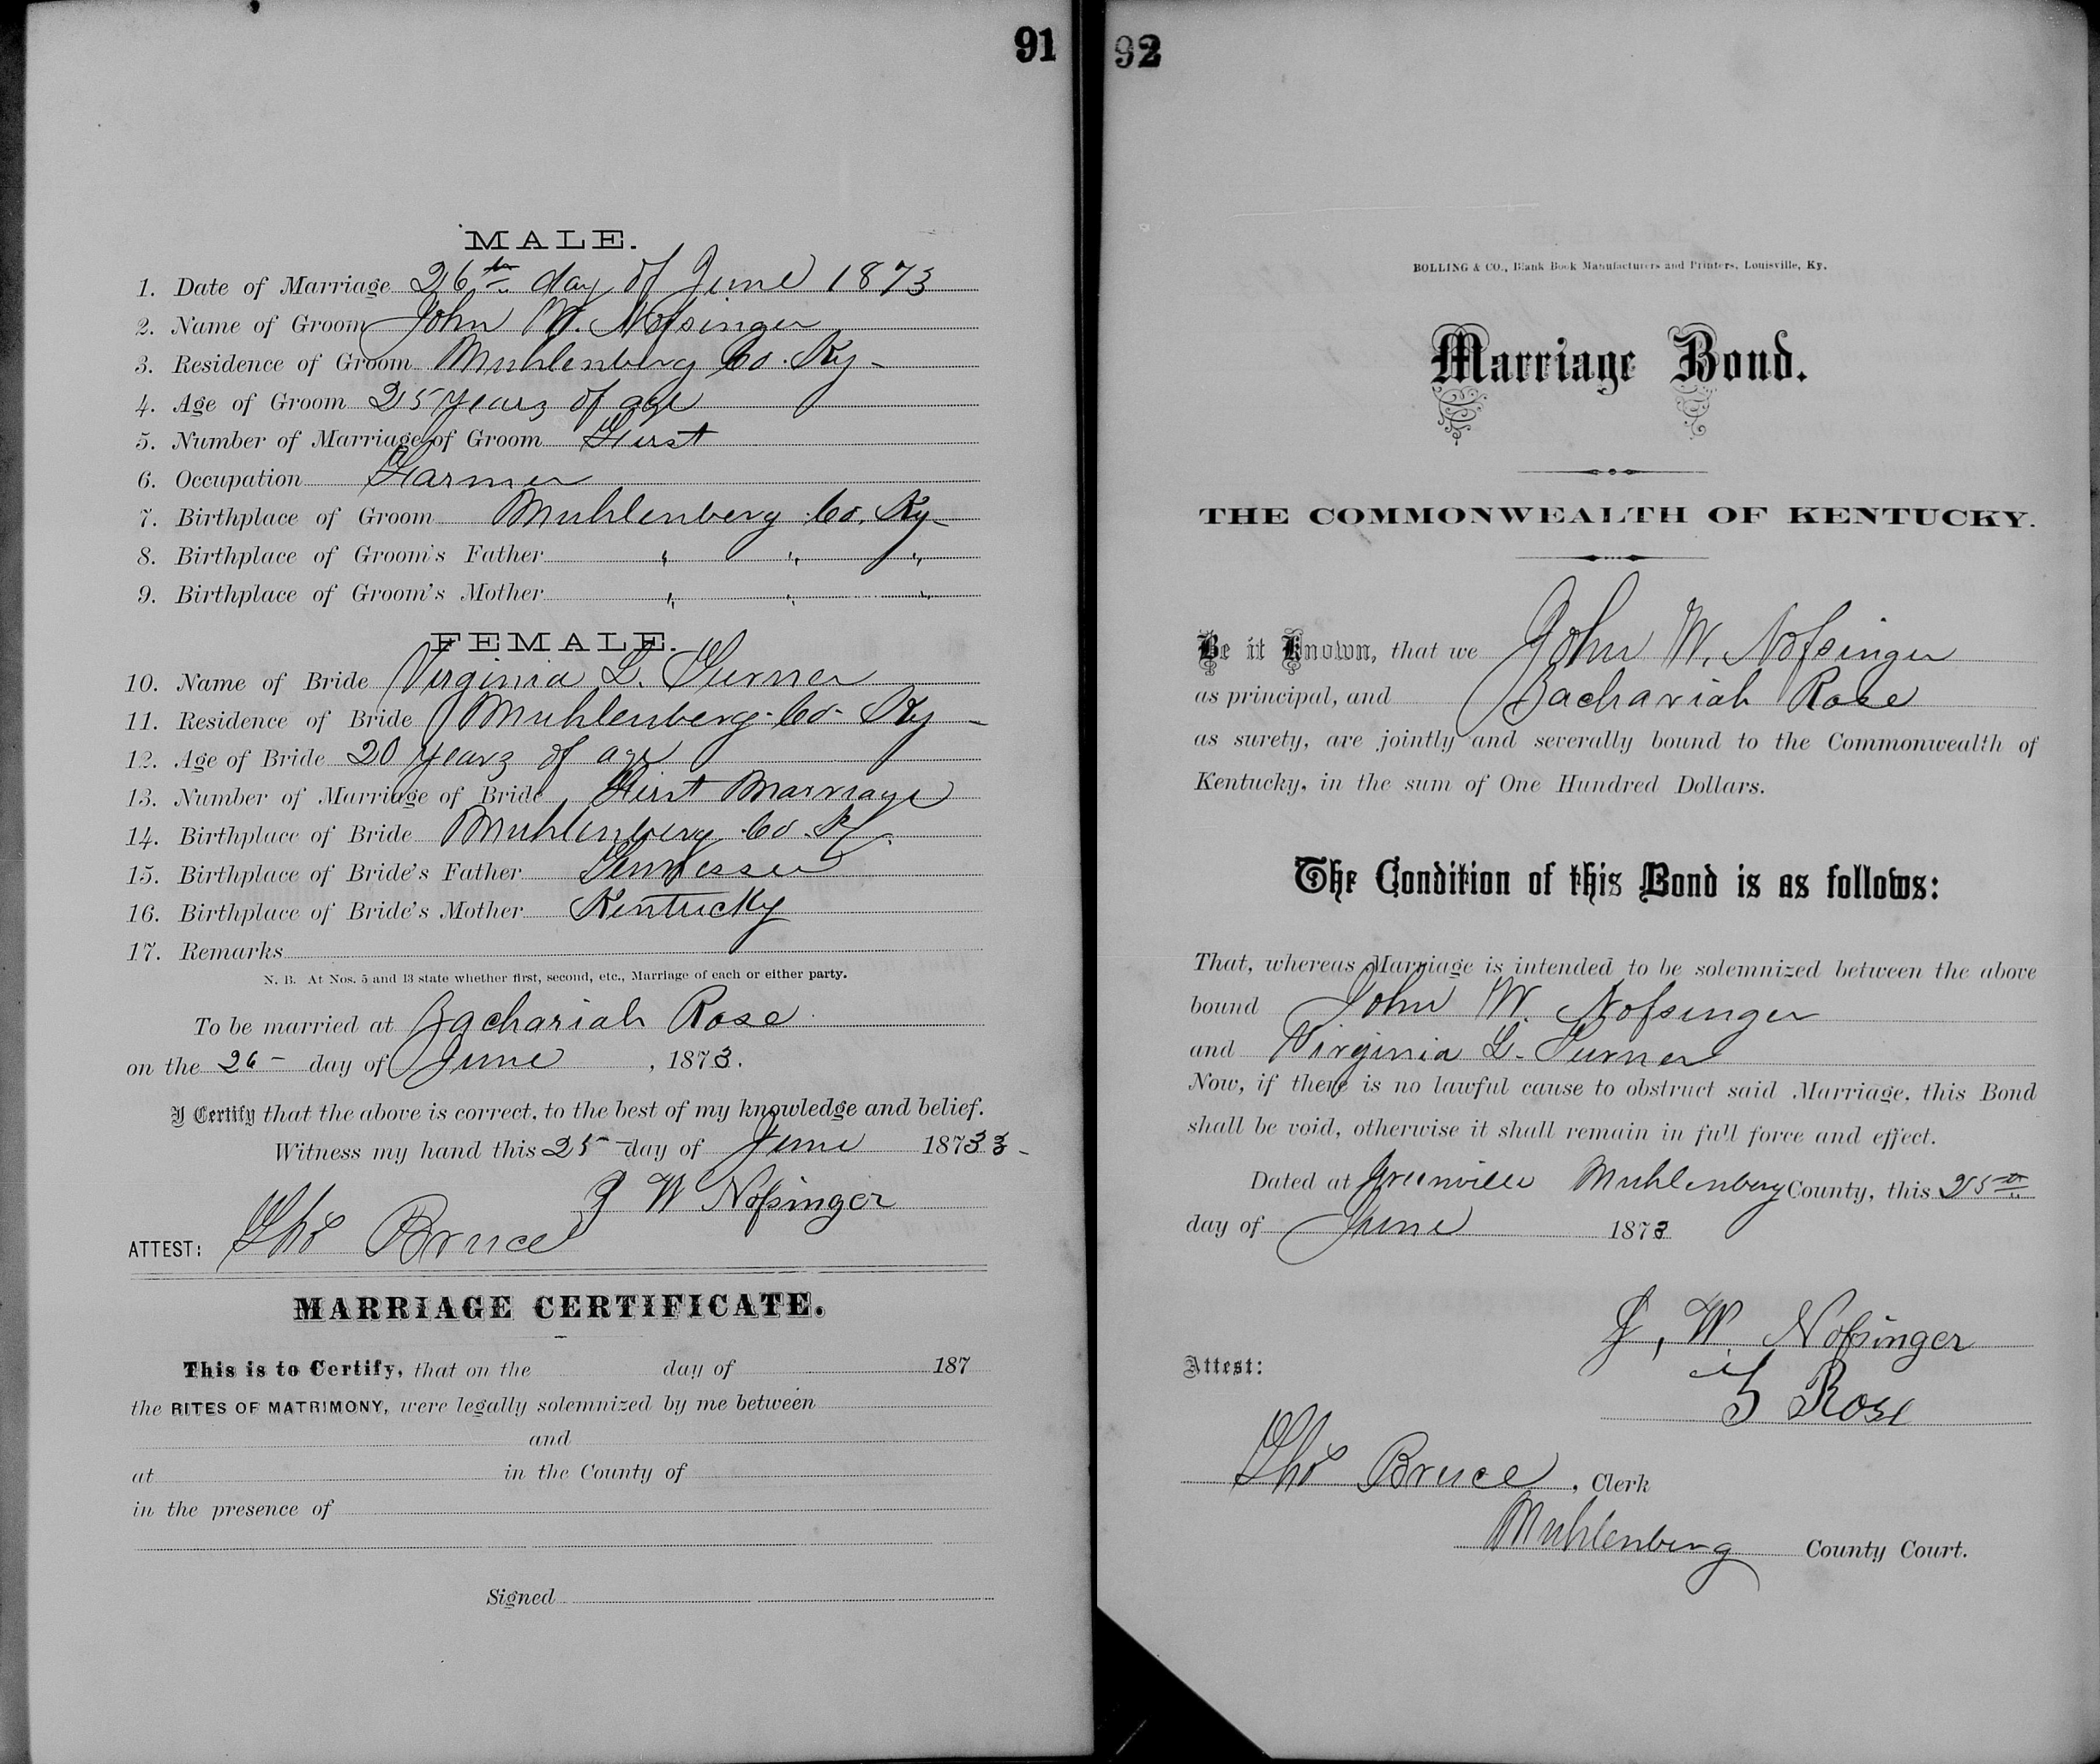 91
MALE.
1. Date of Marriage 26th day of June 1873
2. Name of Groom John W. Nofsinger
3. Residence of Groom Muhlenberg Co. Ky -
4. Age of Groom 25 years of age
5. Number of Marriage of Groom First
6. Occupation Farmer
7. Birthplace of Groom Muhlenberg Co. Ky -
8. Birthplace of Groom's Father " " "
9. Birthplace of Groom's Mother " " "
FEMALE.
10. Name of Bride Virginia L. Turner
11. Residence of Bride Muhlenberg Co - Ky -
12. Age of Bride 20 years of age
13. Number of Marriage of Bride First Marriage
14. Birthplace of Bride Muhlenberg Co. Ky.
15. Birthplace of Bride's Father Tennessee
16. Birthplace of Bride's Mother Kentucky
17. Remarks
N. B. At Nos. 5 and 13 state whether first, second, etc., Marriage of each or either party.
To be married at Zachariah Rose
on the 26 - day of June , 1873.
I Certify that the above is correct, to the best of my knowledge and belief.
Witness my hand this 25 - day of June 1873 3 -
J W Nofsinger
ATTEST: Tho's Bruce
MARRIAGE CERTIFICATE.
This is to Certify, that on the day of 187
the RITES OF MATRIMONY, were legally solemnized by me between
and
at in the County of
in the presence of
Signed
92
BOLLING & CO., Blank Book Manufacturers and Printers, Louisville, Ky.
Marriage Bond.
THE COMMONWEALTH OF KENTUCKY.
Be it Known, that we John W. Nofsinger
as principal, and Zachariah Rose
as surety, are jointly and severally bound to the Commonwealth of
Kentucky, in the sum of One Hundred Dollars.
The Condition of this Bond is as follows:
That, whereas Marriage is intended to be solemnized between the above
bound John W. Nofsinger
and Virginia L. Turner
Now, if there is no lawful cause to obstruct said Marriage, this Bond
shall be void, otherwise it shall remain in full force and effect.
Dated at Greenville Muhlenberg County, this 25th
day of June 1873
J. W. Nofsinger
Attest: Z Rose
Tho's Bruce, Clerk
Muhlenberg County Court.